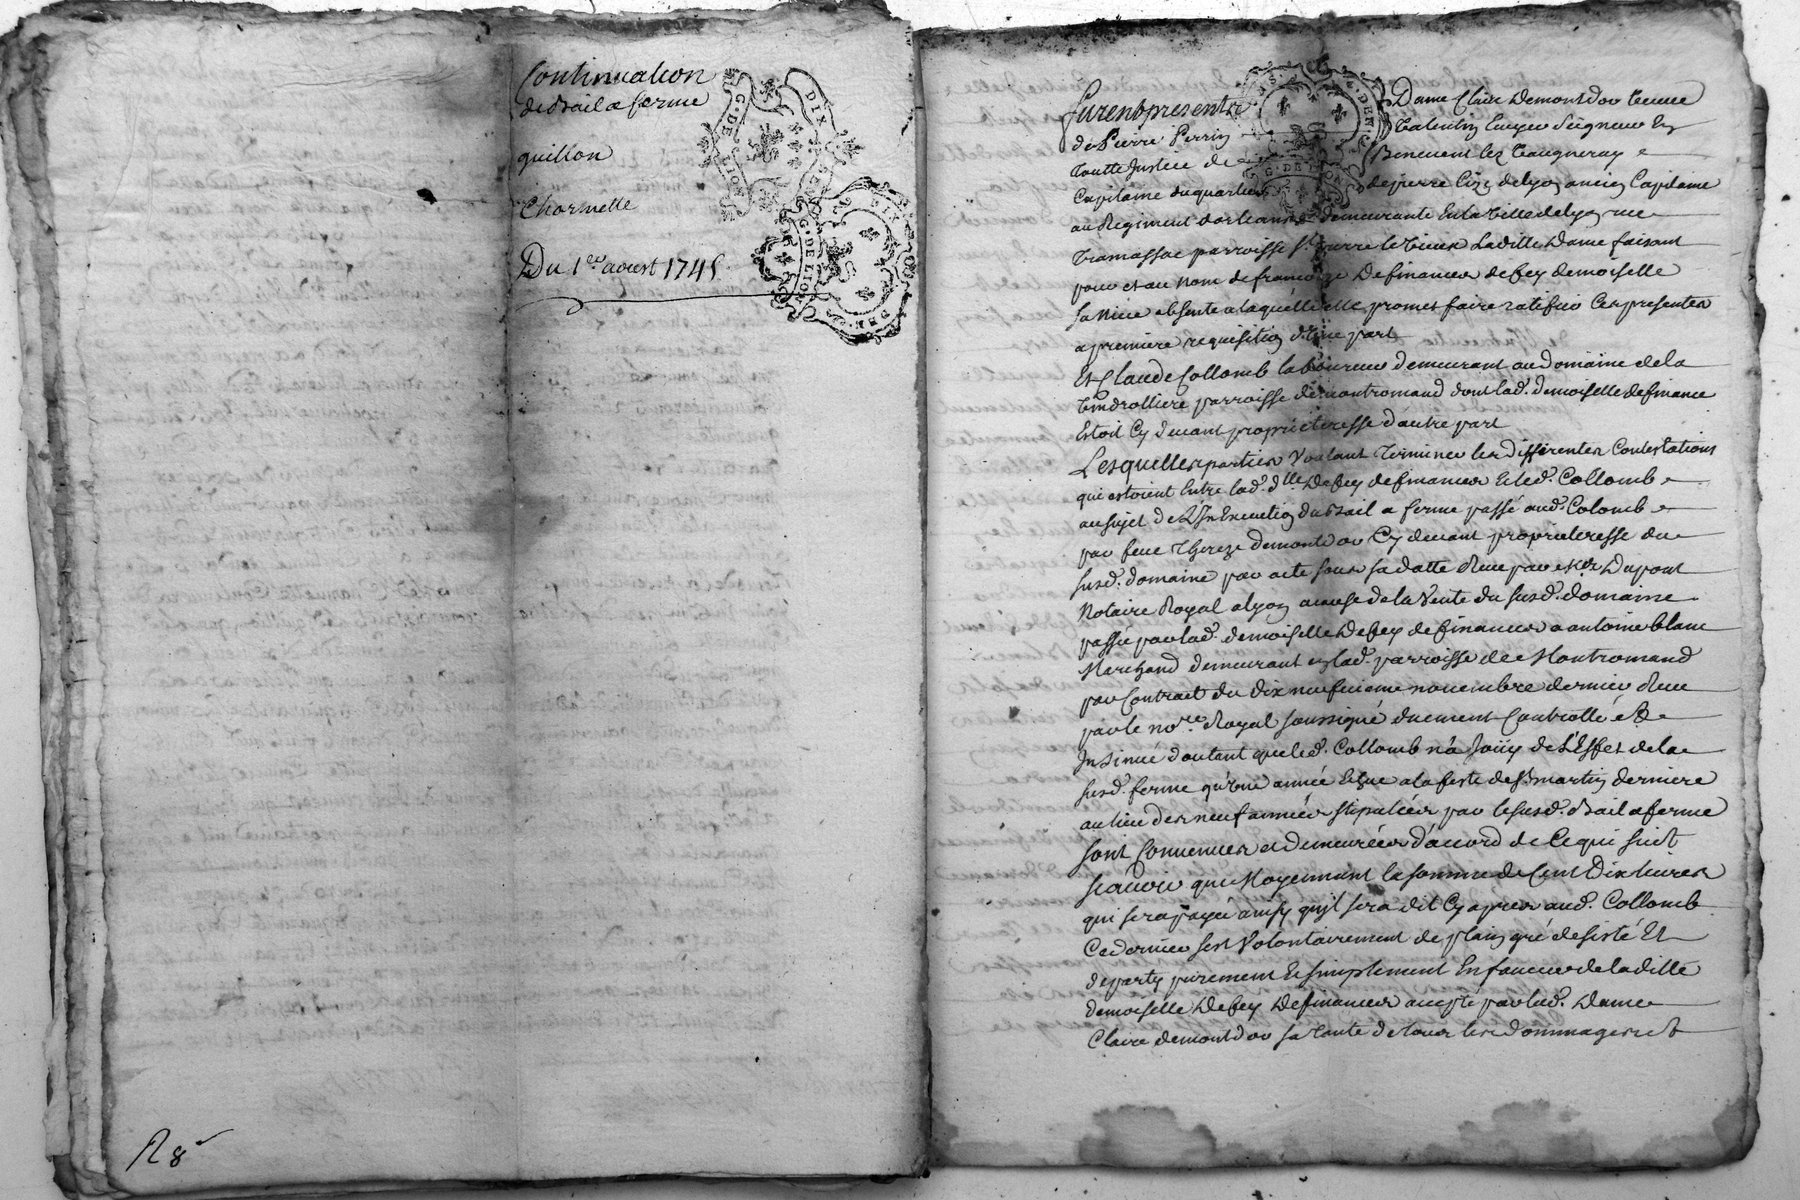 Continuation
de Bail a ferme
guillon
Charmette
Du 1er aoust 1745
G. DE LION DIX DEN.
G. DE LION DIX DEN.
R 8
G. DE LION
furent presents Dame Claire Demontdor veuve
de Pierre Perrin
toutte Justice de Benevent les Vaugneray
Capitaine du quartier de pierre Cize de lyon ancien Capitaine
au Regiment dorleans demeurante en la Ville de lyon rue
Tramassac parroisse St. pierre le Vieux Laditte Dame faisant
pour et au Nom de françoize Definances defey demoiselle
sa Niece absente a laquelle elle promet faire ratifier Ces presentes
a premiere requisition d'une part
Et Claude Collomb laboureur demeurant au domaine de la
parroisse de montromand dont lad. demoiselle definance
Estoit Cy devant proprieteresse d'autre part
Lesquelles parties Voulant Terminer les differentes Contestations
qui estoient Entre lad. dlle Defey definances et led. Collomb
au sujet de L'InExecution du Bail a ferme passé aud. Colomb
par feue Thereze demontdor Cy devant proprieteresse du
susd. domaine par acte sous sa datte Reçu par Dupont
Notaire Royal a lyon a cause de la Vente du susd. domaine
passée par lad. demoiselle Defey definances a antoine blanc
Marchand demeurant en lad. parroisse de Montromand
par Contract du dix neufvieme novembre dernier Reçu
par le nore Royal soussigné duement Controllé et
Insinué d'autant que led. Collomb n'a Joüy de L'Effet de la
susd. ferme qu'une année Echue a la feste de St. martin derniere
au lieu des neuf années stipulées par le susd. Bail a ferme
sont Convenues et demeurées d'accord de Ce qui suit
scavoir que Moyennant la somme de Cent Dix livres
qui sera payée ainsy qu'il sera dit Cy apres aud. Collomb
Ce dernier s'est Volontairement de plain gré desisté Et
departy purement Et simplement En faveur de laditte
demoiselle Defey Definances accepté par lad. Dame
Claire demontdor sa tante de tous les dommages et